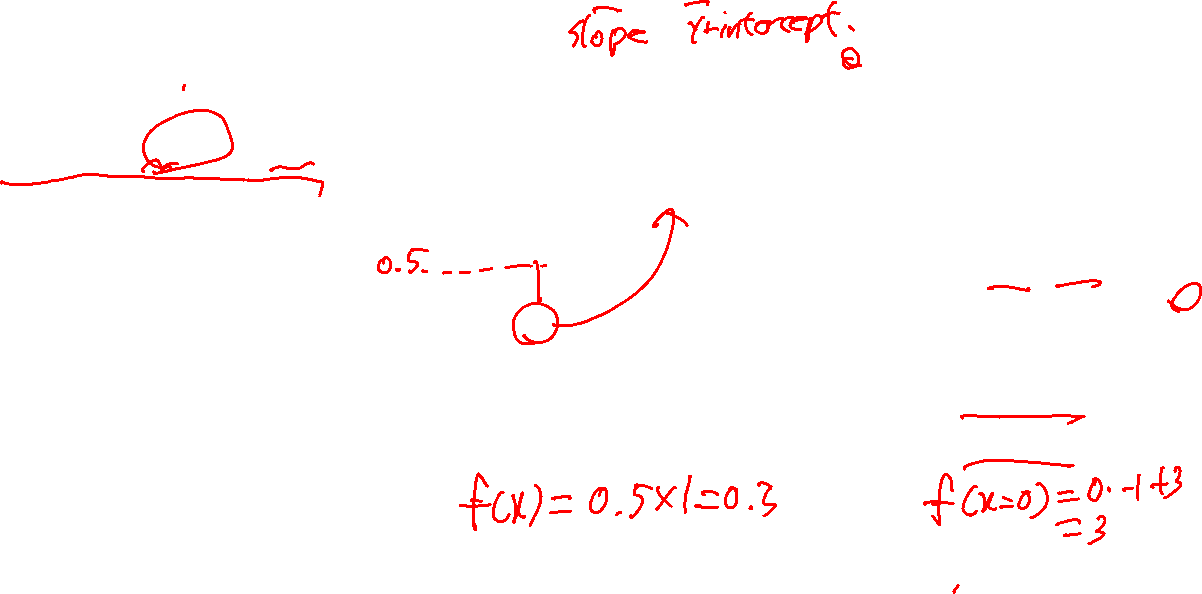 slope Y-intercept.
0.5.
f(x) = 0.5×1=0.3
f(x=0) = 0·-1+3
=3